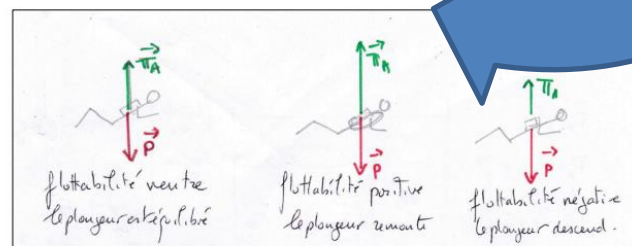 π⃗_A
P⃗
flottabilité neutre
le plongeur est équilibré
π⃗_A
P⃗
flottabilité positive
le plongeur remonte
π⃗_A
P⃗
flottabilité négative
le plongeur descend.